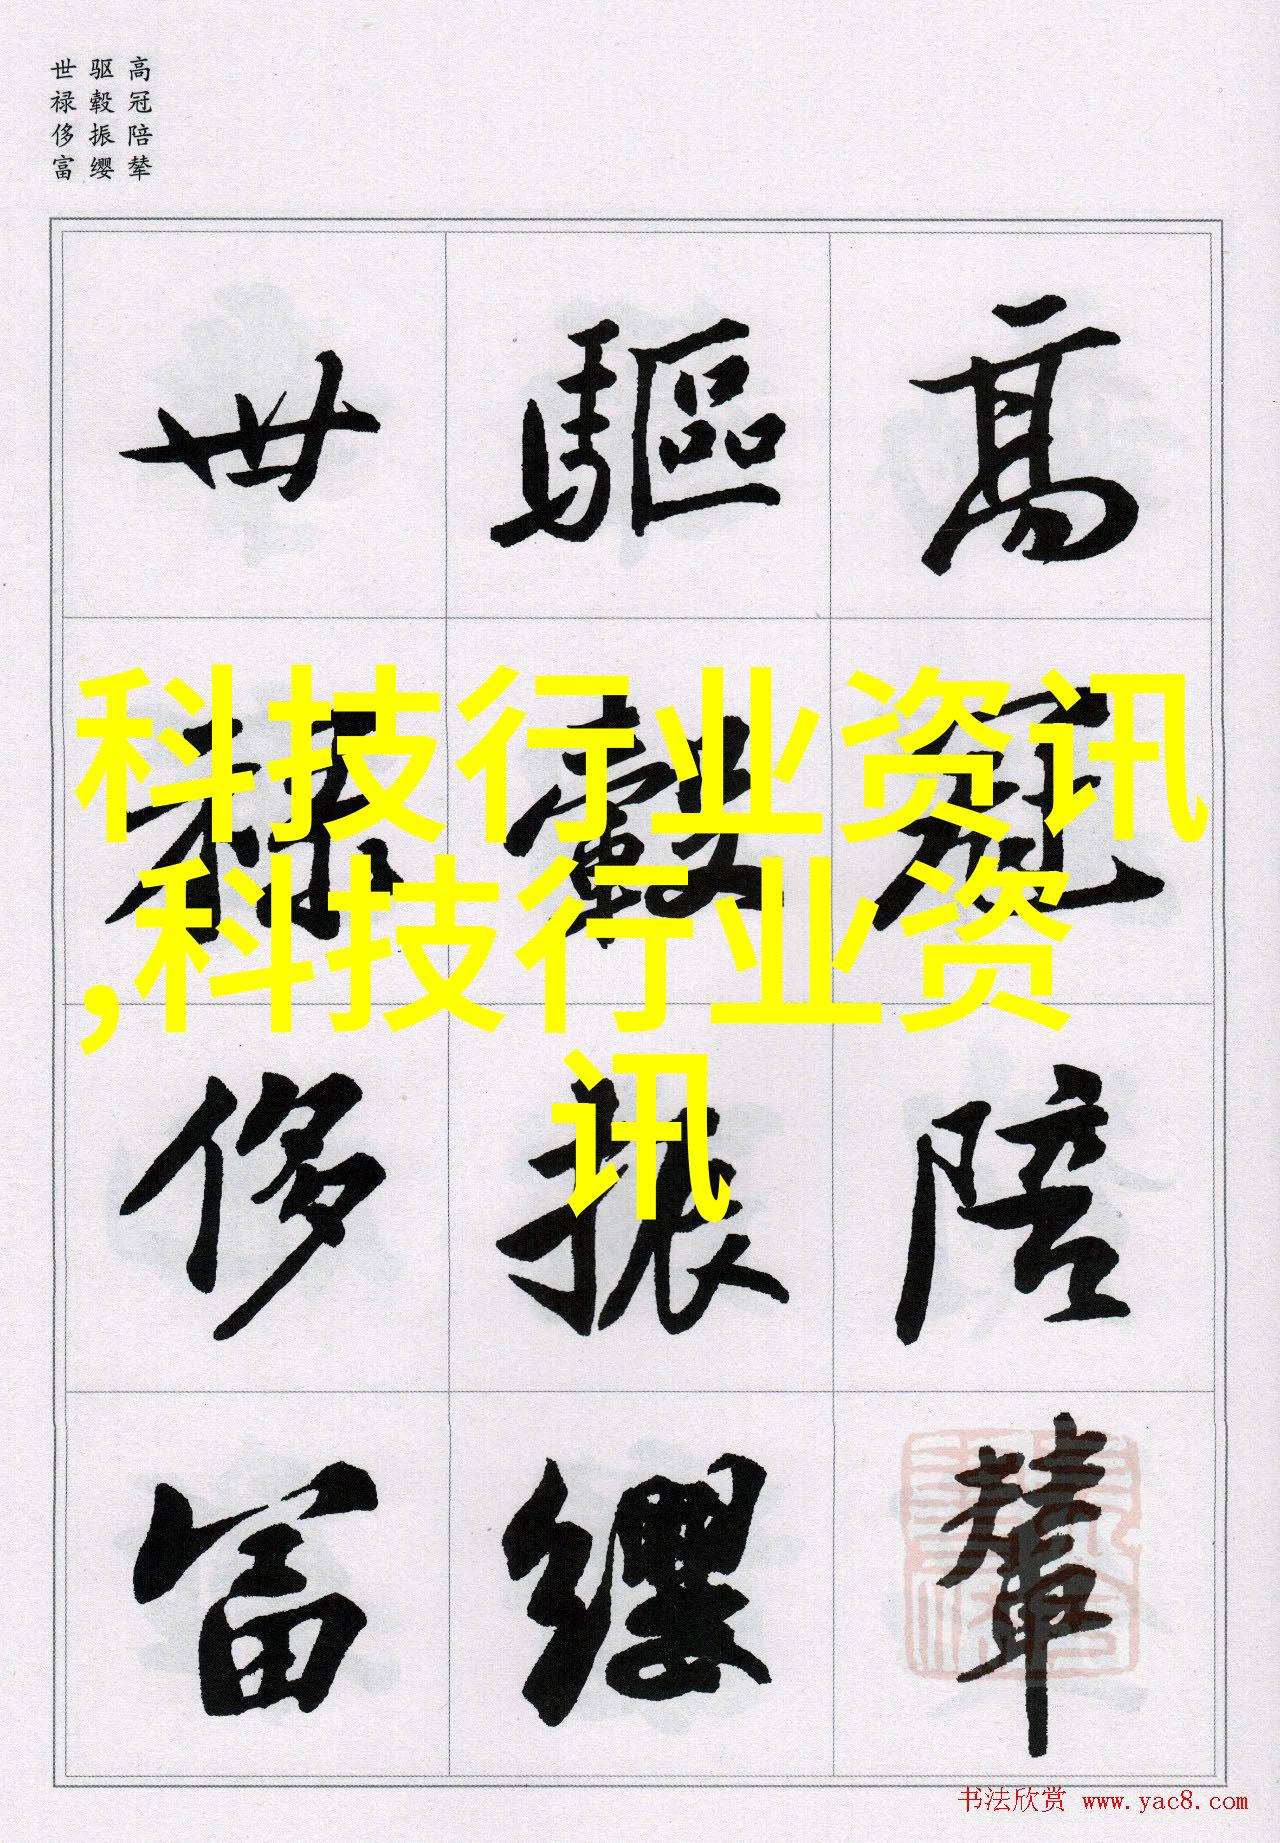 高冠陪辇
驱毂振缨
世禄侈富
高冠陪輦
驅轂振纓
世禄侈富
科技行业资讯
,科技行业资
讯
书法欣赏 www.yac8.com